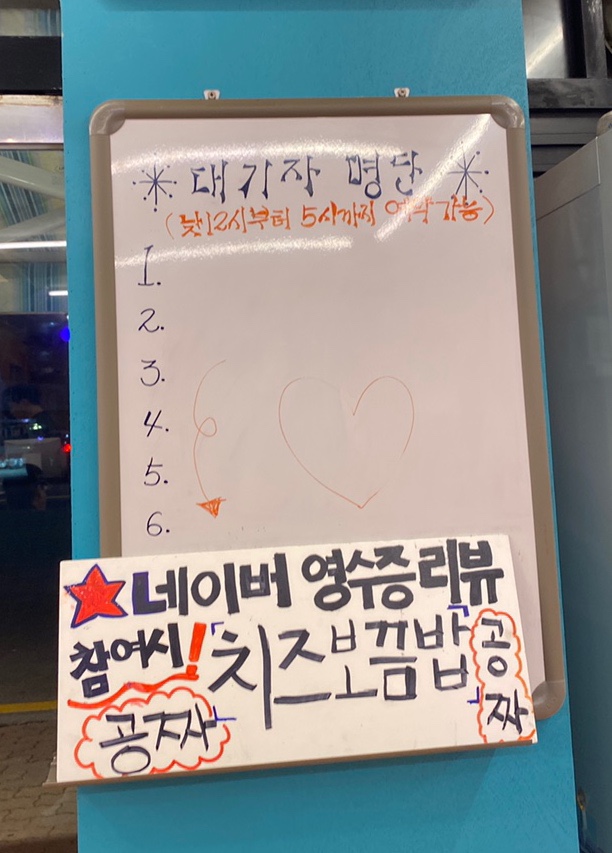 대기자 명단
(낮12시부터 5시까지 예약가능)
1.
2.
3.
4.
5.
6.
네이버 영수증 리뷰
참여시! 「치즈볶음밥」 공짜
공짜